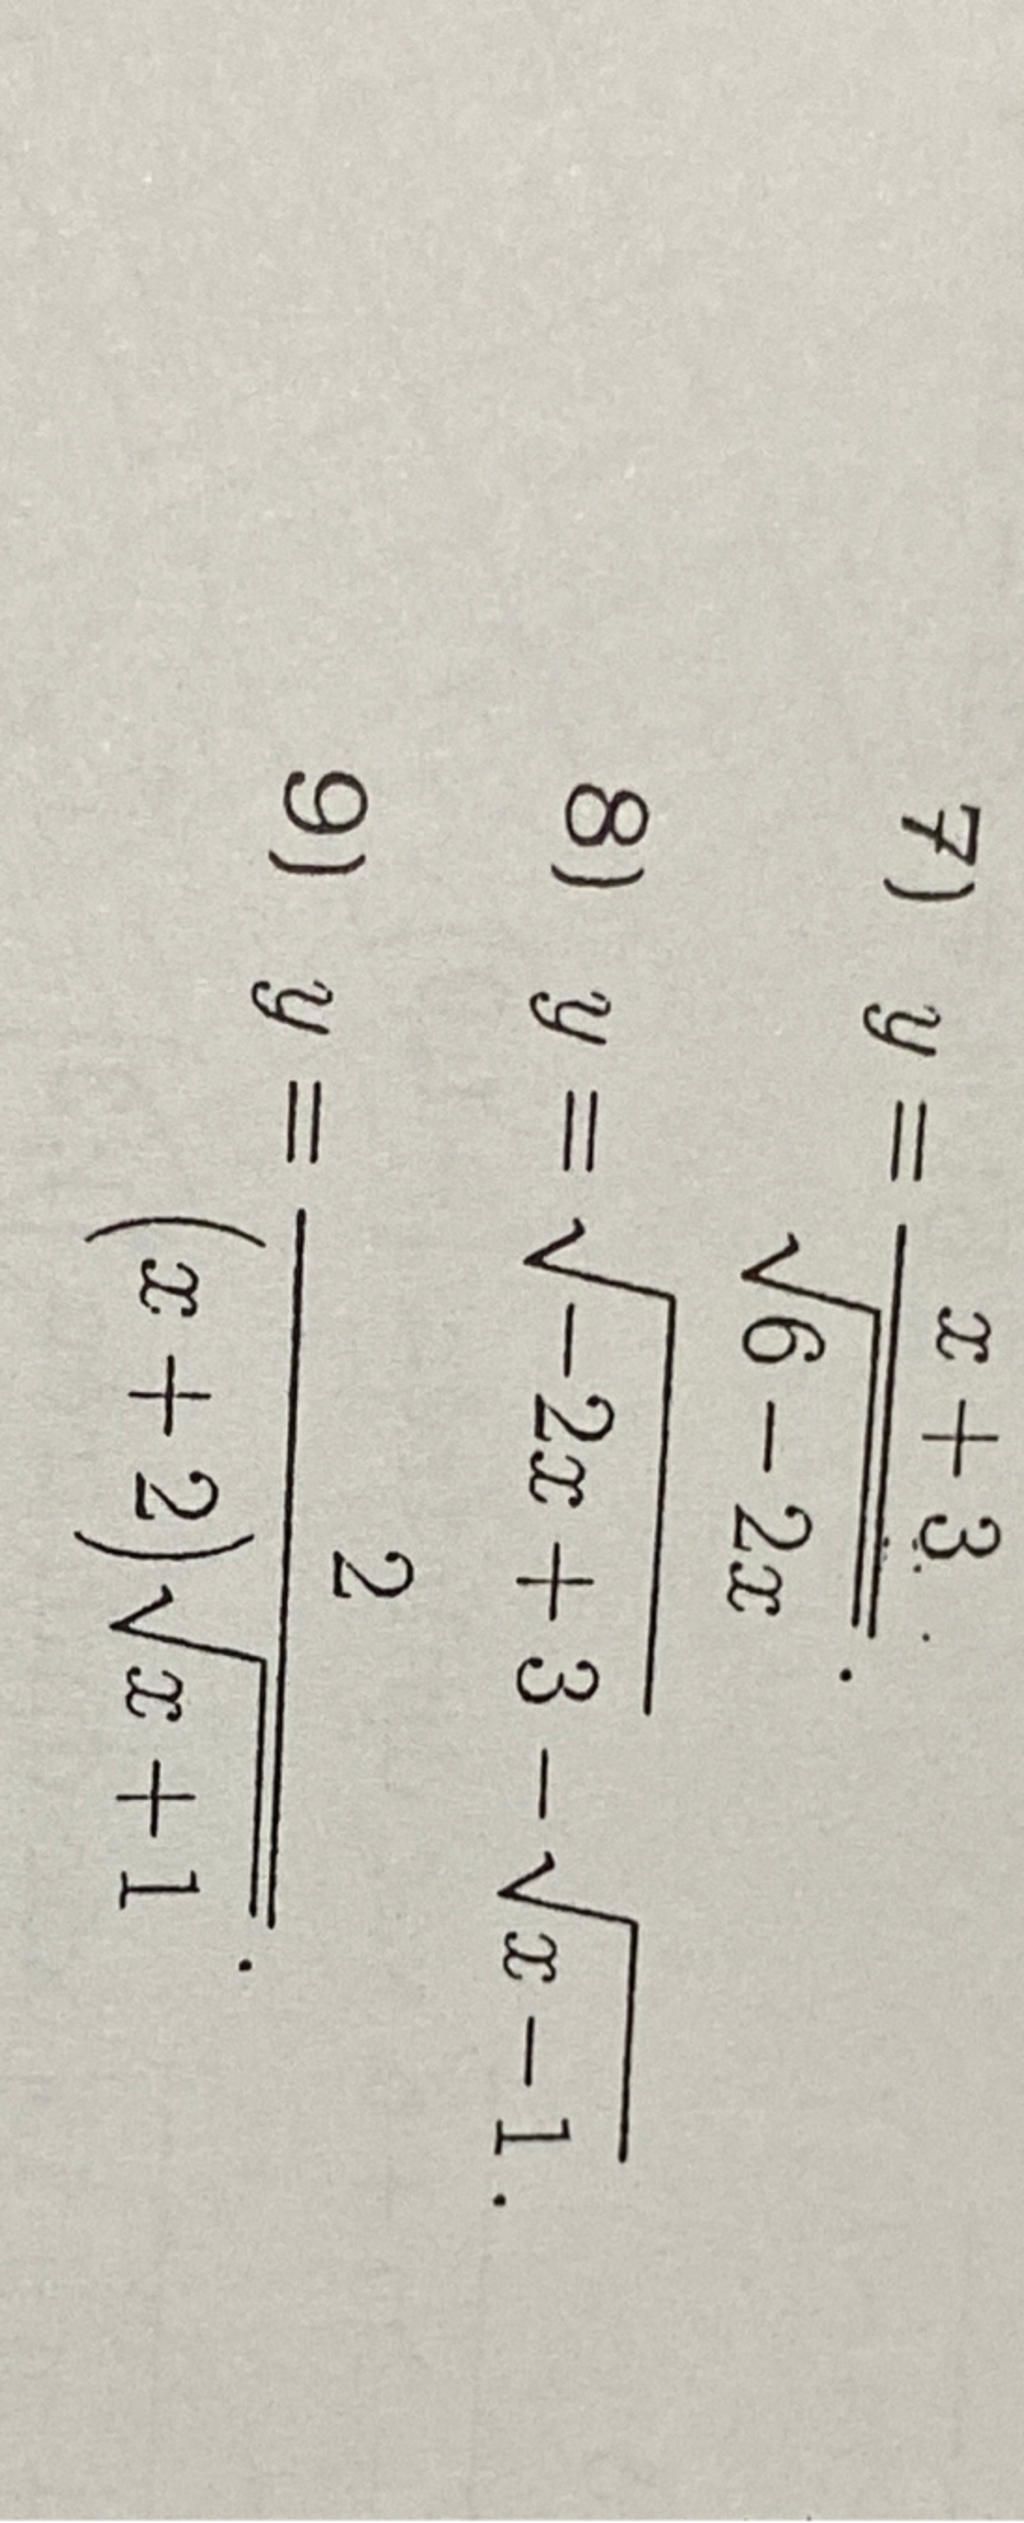 7) y = \frac{x + 3}{\sqrt{6 - 2x}}.
8) y = \sqrt{-2x + 3} - \sqrt{x - 1}.
9) y = \frac{2}{(x + 2)\sqrt{x + 1}}.